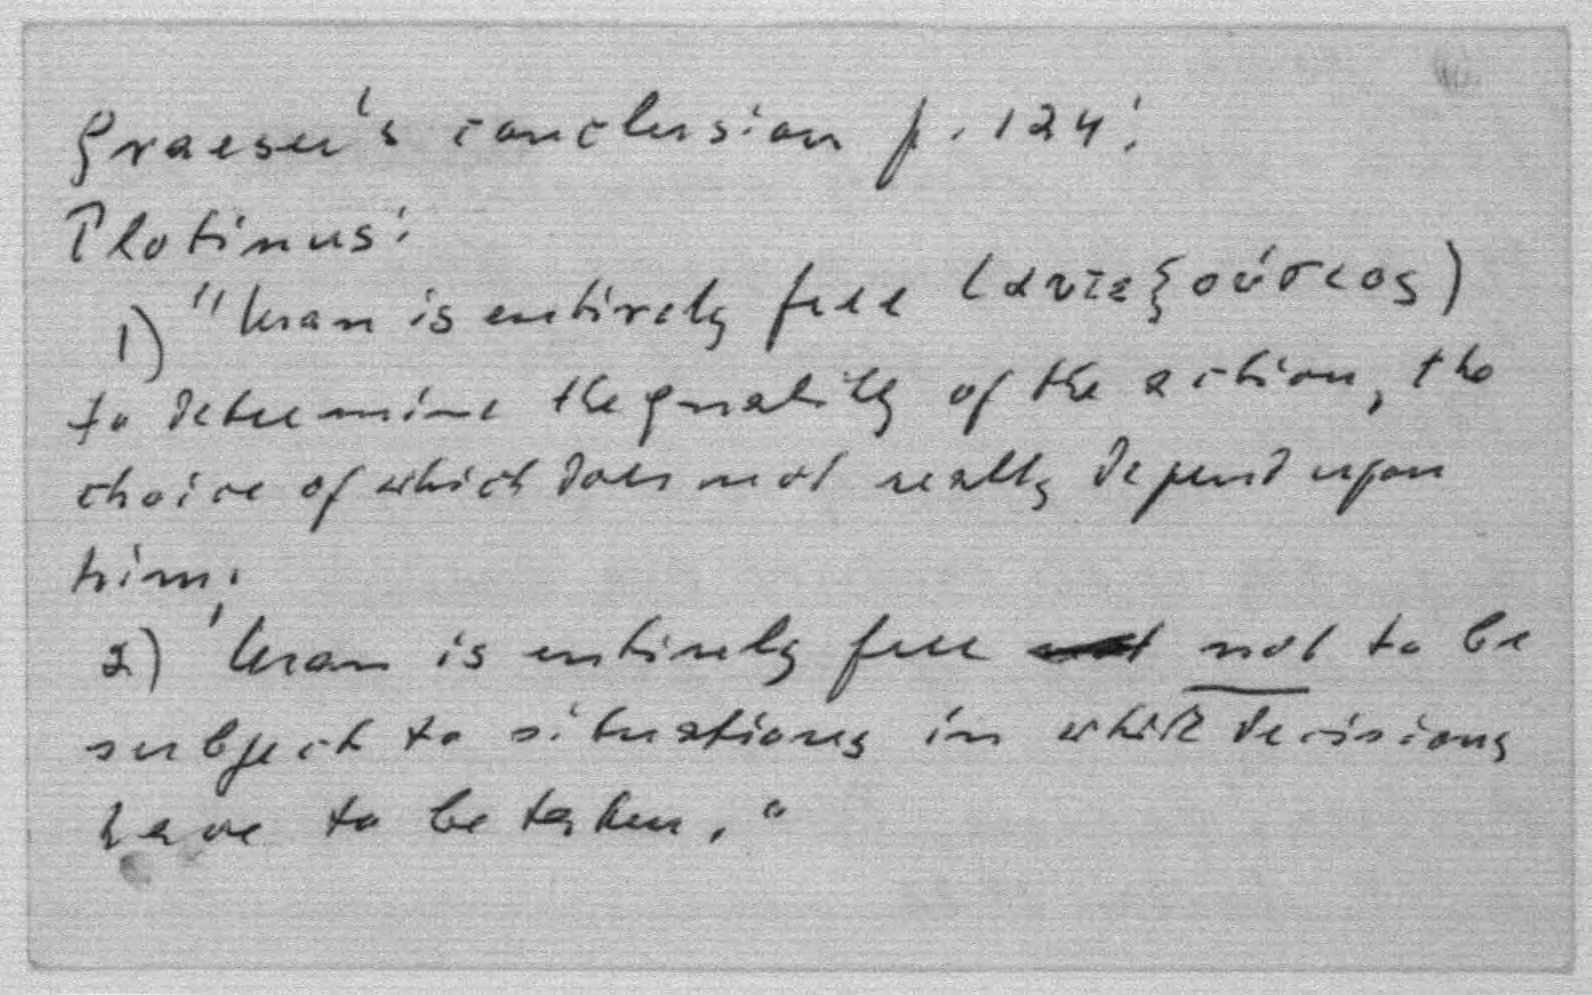 Graeser's conclusion p. 124:
Plotinus:
1) "Man is entirely free (αντεξούσιος)
to determine the quality of the action, the
choice of which does not really depend upon
him.
2) 'Man is entirely free not to be
subject to situations in which decisions
have to be taken."